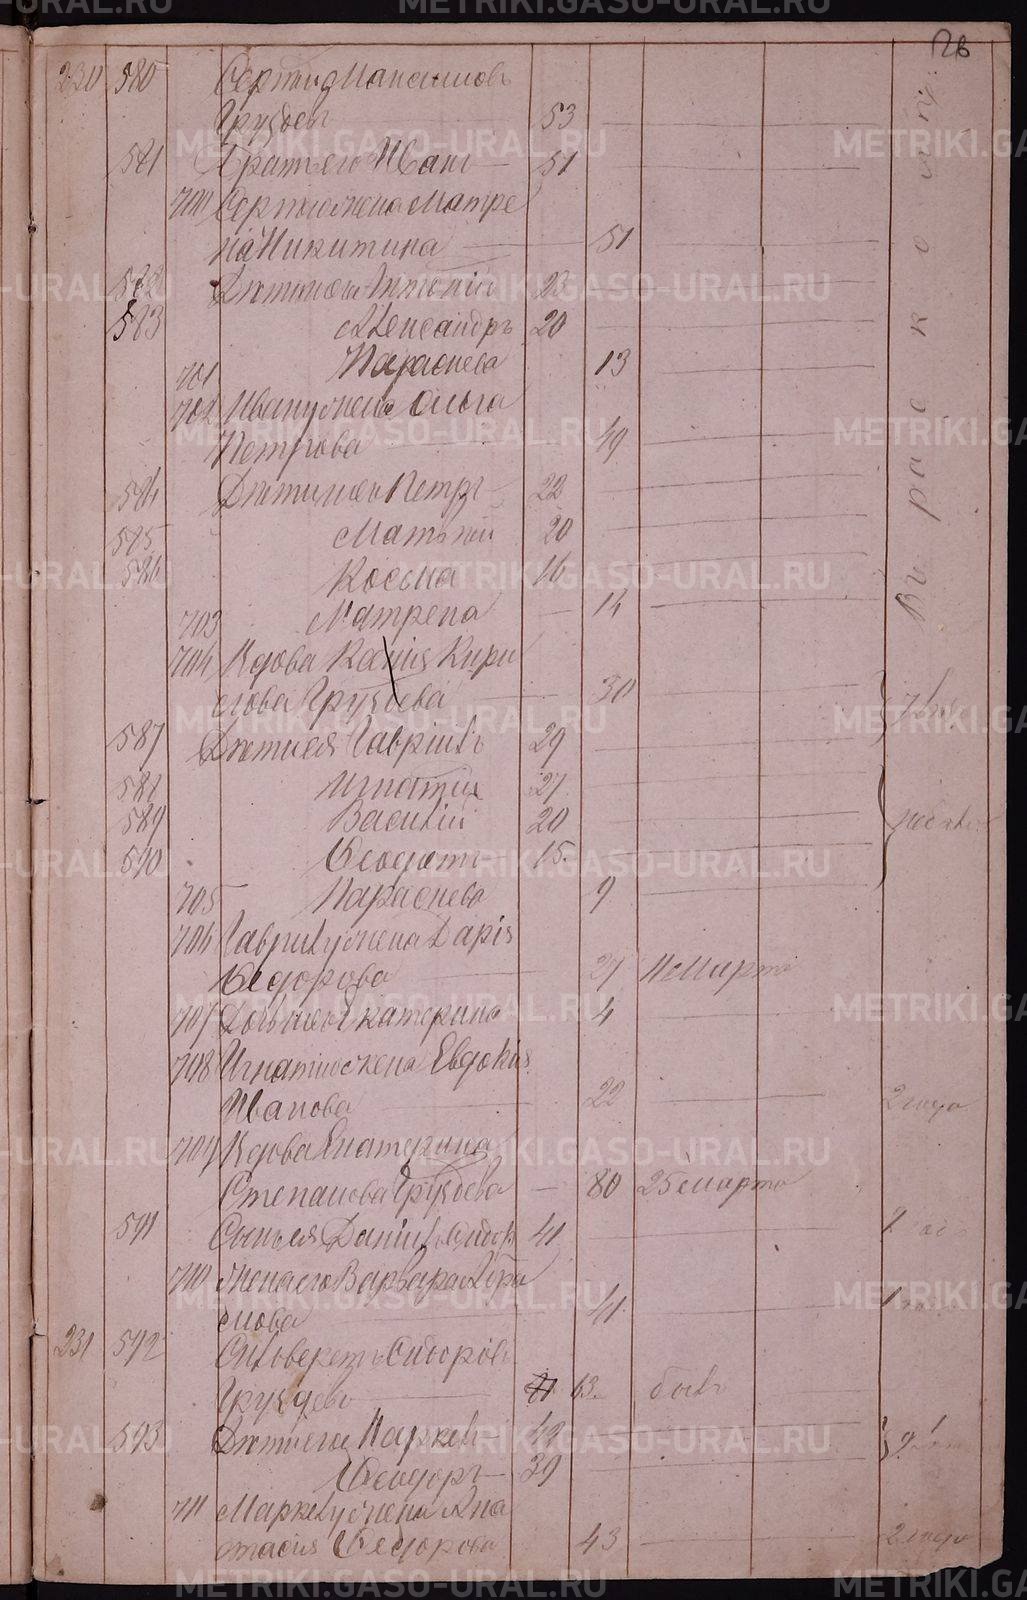 230 580 Сергий Максимовъ
Груздевъ 53
581 Братъ его Иванъ 51
700 Сергия жена Матре
на Никитина 51
582 Дети его Антоній 23
583 Александръ 20
701 Параскева 13
702 Ивану жена Ольга
Петрова 49
584 Дети его Петръ 22
585 Матвей 20
586 Козьма 16
703 Матрена 14
704 Вдова Ксенія Кири
лова Груздева 30
587 Дети ея Гавріилъ 29
588 Игнатій 27
589 Василій 20
590 Феодотъ 15
705 Параскева 9
706 Гаврилу жена Дарія
Федорова 27 Марта
707 Дочь ихъ Екатерина 4
708 Игнатію жена Евдокія
Иванова 22 2 года
709 Вдова Екатерина
Степанова Груздева 80 25 Марта
591 Сынъ ея Даніилъ Сидор 41
710 Жена его Варвара Абра
мова 41
231 592 Силоверстъ Сидоровъ
Груздевъ 63 былъ
593 Дети его Маркелъ 42
Феодоръ 39
711 Маркелу жена Ана
стасія Федорова 43 2 года
Въ расколѣ
METRIKI.GASO-URAL.RU